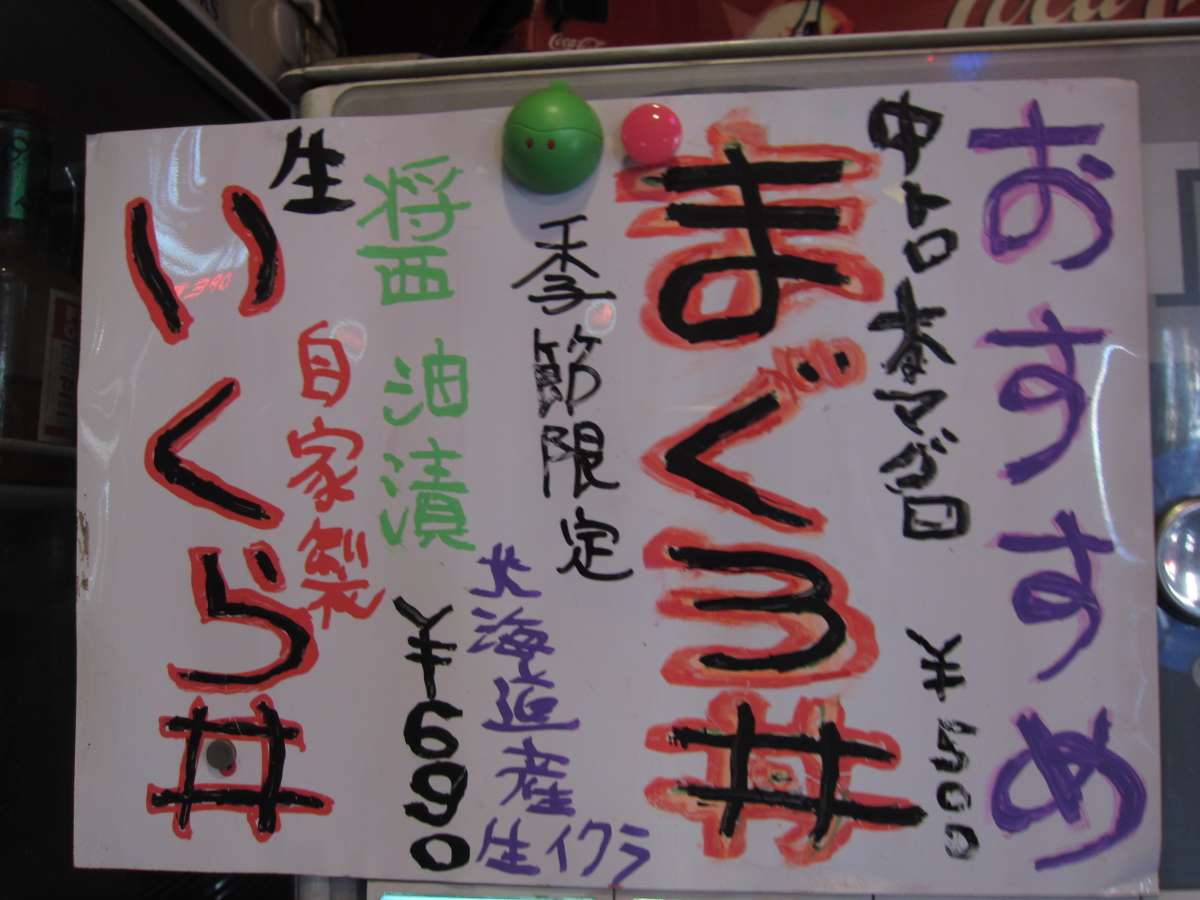 おすすめ
中トロ本マグロ ¥500
まぐろ丼
季節限定
北海道産
生イクラ
醤油漬 ¥690
自家製
生
いくら丼
Coca-Cola